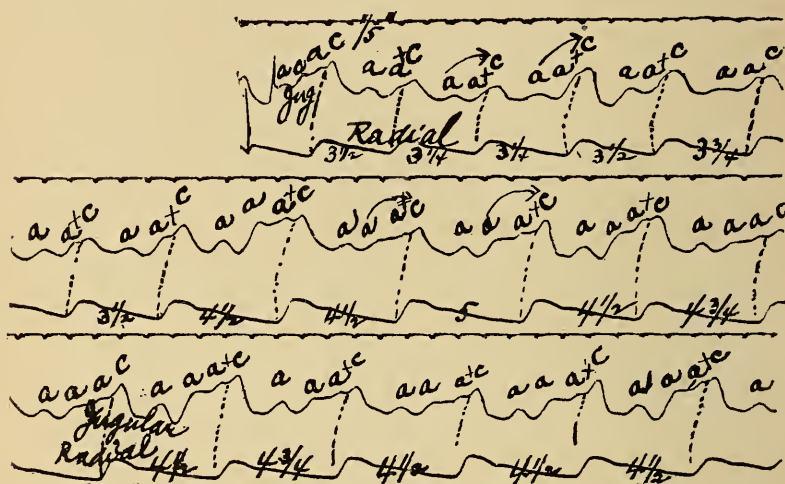 a a a c 1/5"
a a+c a a+c a a+c a a+c a a c
Jug
Radial
3 1/2 3 1/4 3 1/4 3 1/2 3 3/4
a a+c a a+c a a a+c a a a+c a a a+c a a a+c a a a c
3 1/2 4 1/2 4 1/2 5 4 1/2 4 3/4
a a a c a a a+c a a a+c a a a+c a a a+c a a a+c a
Jugular
Radial
4 1/2 4 3/4 4 1/2 4 1/2 4 1/2